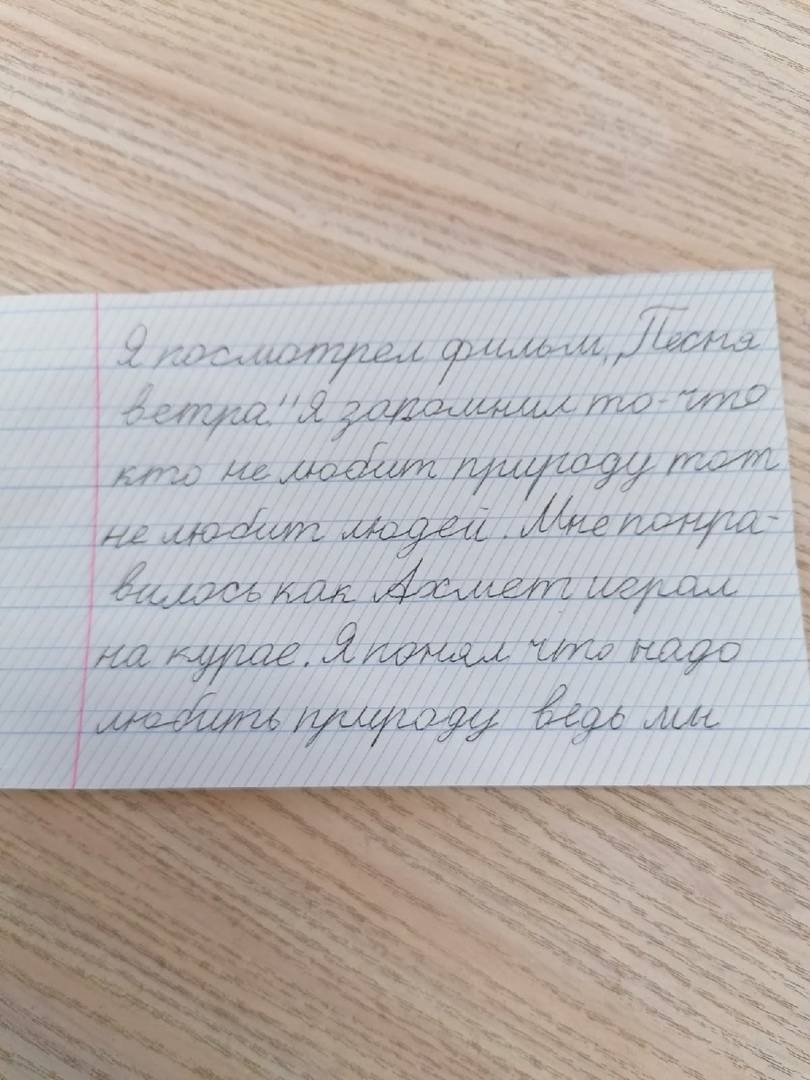 Я посмотрел фильм „Песня
ветра." Я запомнил то-что
кто не любит природу тот
не любит людей. Мне понра-
вилось как Ахмет играл
на курае. Я понял что надо
любить природу ведь мы